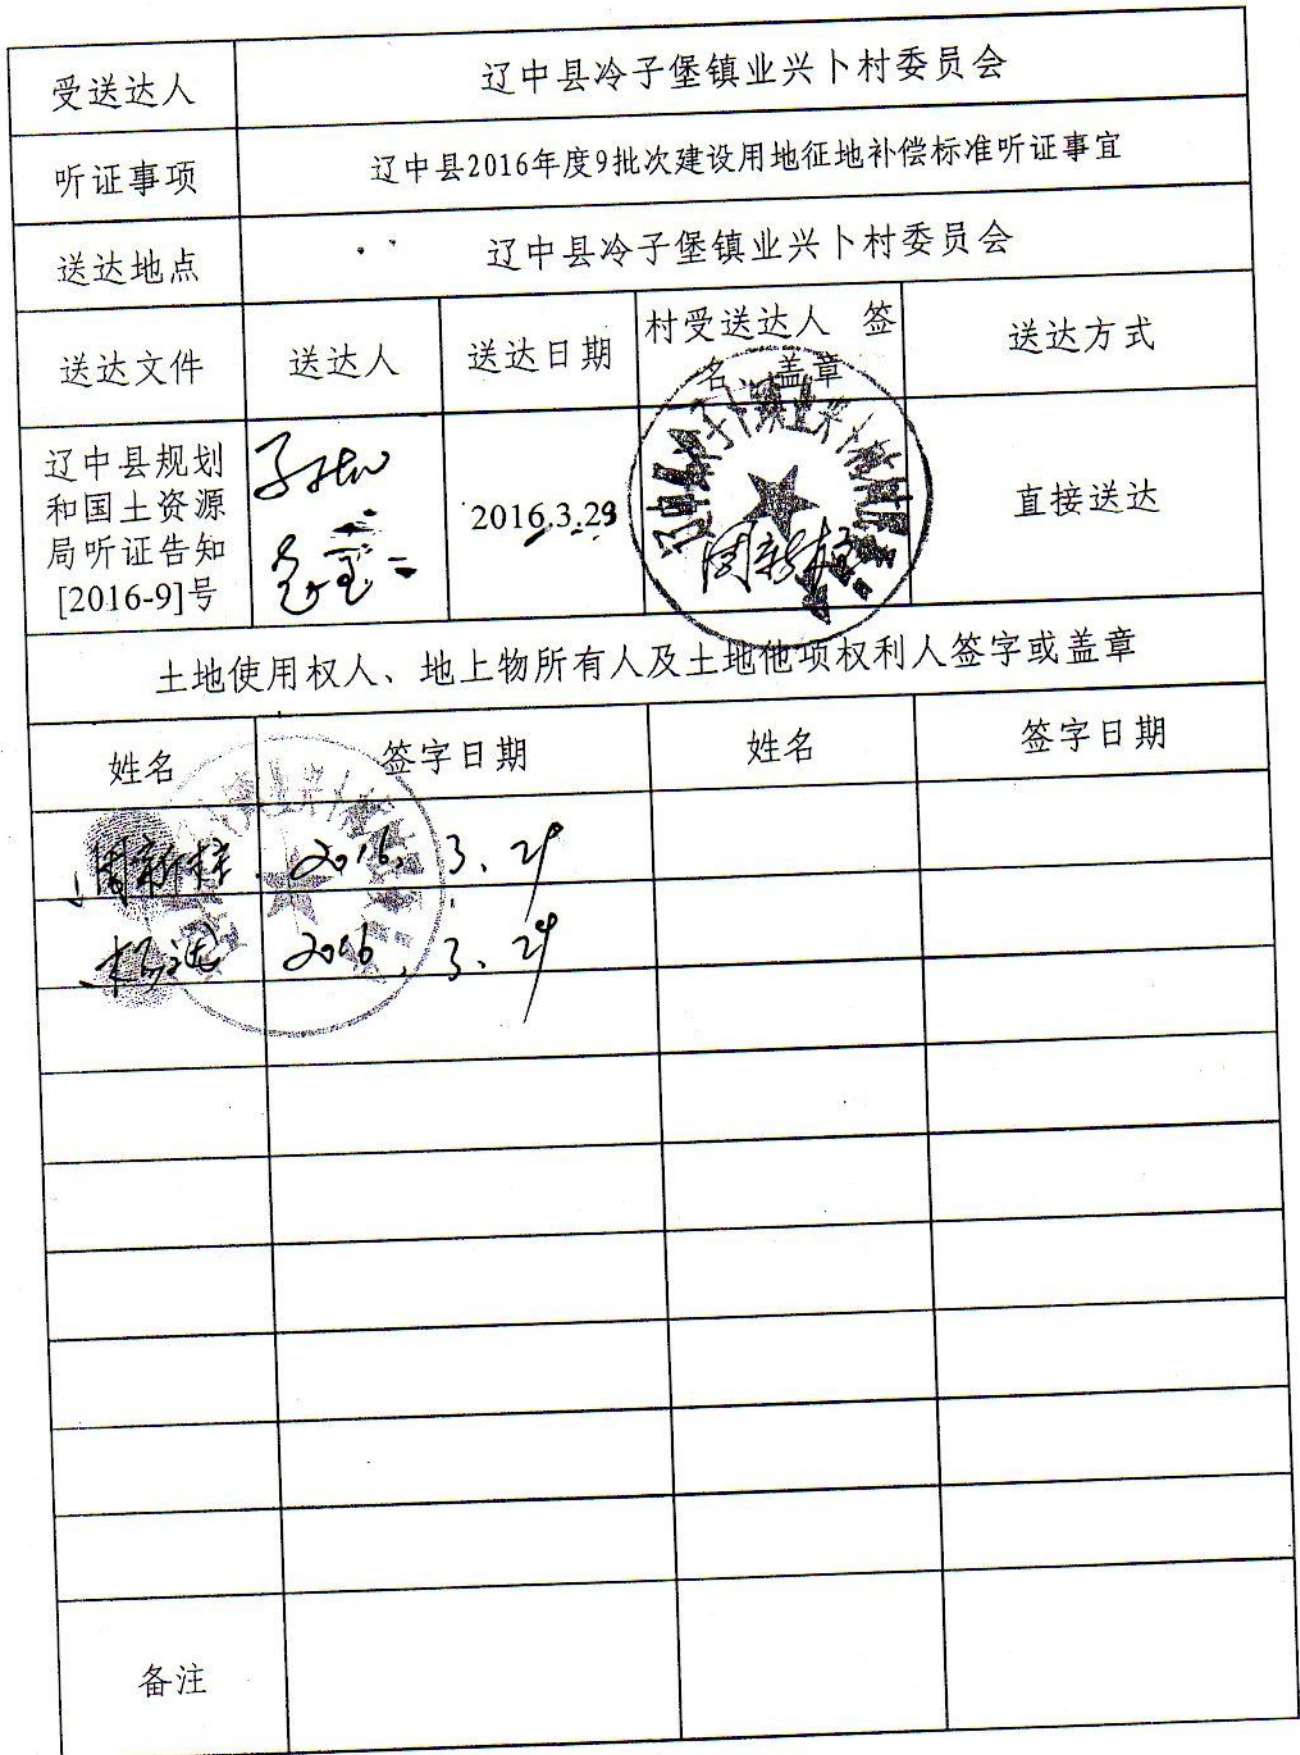 受送达人
辽中县冷子堡镇业兴卜村委员会
听证事项
辽中县2016年度9批次建设用地征地补偿标准听证事宜
送达地点
辽中县冷子堡镇业兴卜村委员会
送达文件
送达人
送达日期
村受送达人 签
名 盖章
送达方式
辽中县规划
和国土资源
局听证告知
[2016-9]号
2016.3.29
周新柱
直接送达
土地使用权人、地上物所有人及土地他项权利人签字或盖章
姓名
签字日期
姓名
签字日期
周新柱
2016.3.29
2016.3.29
备注